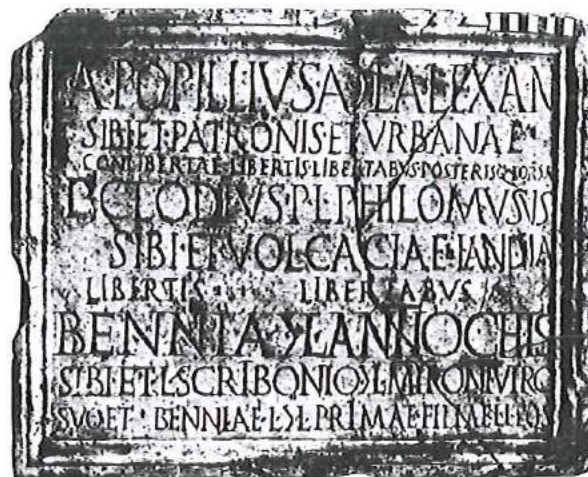 A·POPILLIVS·A·Ɔ·L·ALEXAN
SIBI·ET·PATRONIS·ET·VRBANAE
CONLIBERTAE·LIBERTIS·LIBERTABVS
P·CLODIVS·P·L·PHILOMVSVS
SIBI·ET·VOLCACIAE
LIBERTIS LIBERTABVS
BENNIA·Ɔ·L·ANTIOCHIS
SIBI·ET·L·SCRIBONIO·Ɔ·L·MYRONI·VIRO
SVO·ET·BENNIAE·L·Ɔ·L·PRIMAE